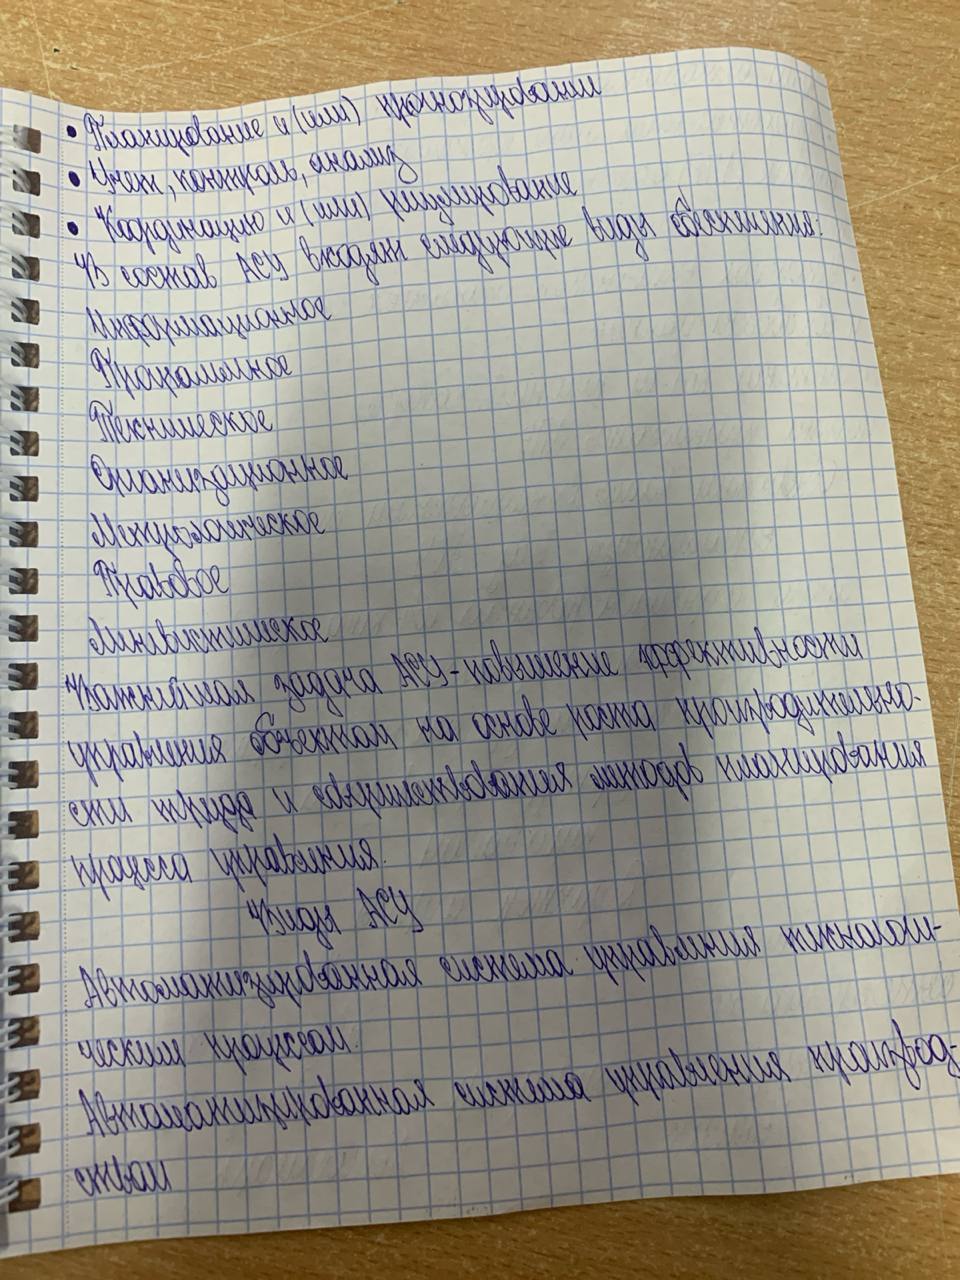 • Планирование и (или) прогнозирование
• Учет, контроль, анализ
• Координацию и (или) регулирование
В состав АСУ входят следующие виды обеспечения:
Информационное
Програмное
Техническое
Организационное
Метрологическое
Правовое
Лингвистическое
Важнейшая задача АСУ - повышение эффективности
управления объектом на основе роста производительно-
сти труда и совершенствования методов планирования
процесса управления.
Виды АСУ
Автоматизированная система управления технологи-
ческим процессом.
Автоматизированная система управления производ-
ством